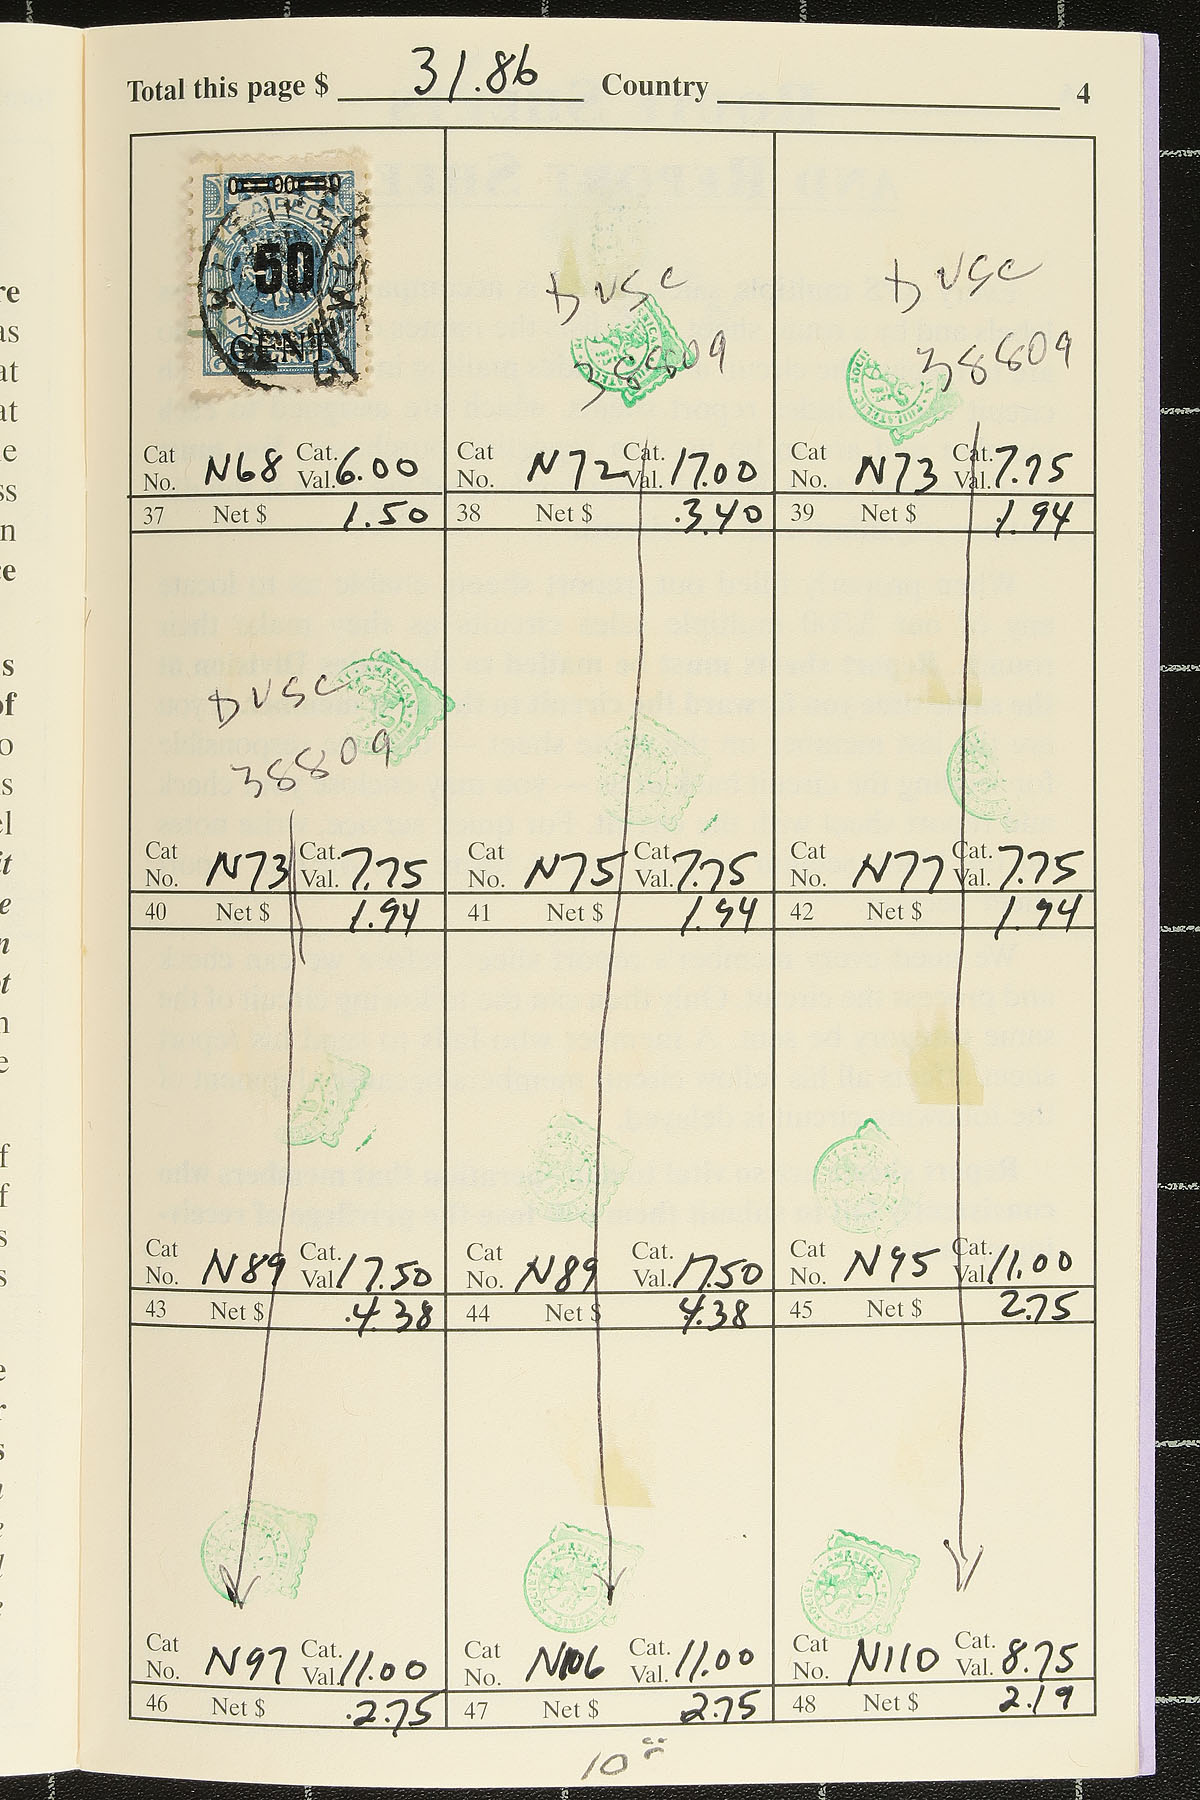 Total this page $ 31.86 Country 4
50
CENT
DVSC
38809
DVSC
38809
Cat No. N68 Cat. Val. 6.00
37 Net $ 1.50
Cat No. N72 Cat. Val. 17.00
38 Net $ 3.40
Cat No. N73 Cat. Val. 7.75
39 Net $ 1.94
DVSC
38809
Cat No. N73 Cat. Val. 7.75
40 Net $ 1.94
Cat No. N75 Cat. Val. 7.75
41 Net $ 1.94
Cat No. N77 Cat. Val. 7.75
42 Net $ 1.94
Cat No. N89 Cat. Val. 17.50
43 Net $ 4.38
Cat No. N89 Cat. Val. 17.50
44 Net $ 4.38
Cat No. N95 Cat. Val. 11.00
45 Net $ 2.75
AMERICAN PHILATELIC SOCIETY
Cat No. N97 Cat. Val. 11.00
46 Net $ 2.75
Cat No. N106 Cat. Val. 11.00
47 Net $ 2.75
Cat No. N110 Cat. Val. 8.75
48 Net $ 2.19